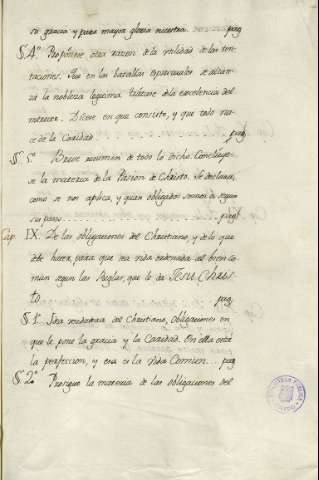 su gracia y para mayor gloria nuestra. pag
§. 4º. Propónese otra razon de la utilidad de las ten-
taciones. Que en las batallas espirituales se alcan-
za la nobleza legitima. Tratase de la excelencia del
merecer. Dicese en que consiste, y que todo na-
ce de la Caridad. pag.
§. 5º. Breve resumen de todo lo dicho. Concluye-
se la materia de la Pasion de Christo. Se declara,
como se nos aplica, y quan obligados somos à seguir
sus pasos. pag.
Cap. IX. De las obligaciones del Christiano, y de lo que
debe hacer, para que sea vida ordenada al bien co-
mun segun las Reglas, que le da Jesu Chris-
to. pag.
§. 1º. Vida verdadera del Christiano, Obligaciones en
que le pone la gracia y la Caridad. En ella está
la perfeccion, y esa es la vida Comun. pag
§. 2º. Prosigue la materia de las obligaciones del